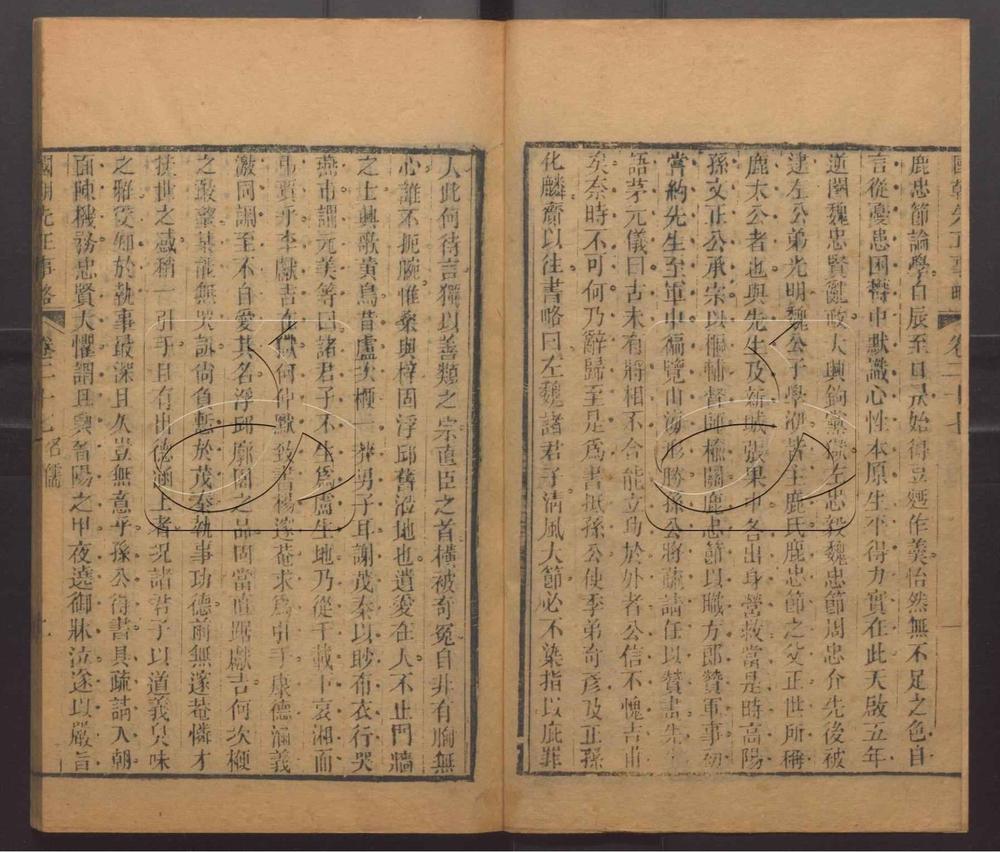 鹿忠節論學自辰至日昃始得豆麪作羹怡然無不足之色自
言從憂患困鬱中默識心性本原生平得力實在此天啟五年
逆閹魏忠賢亂政大興鉤黨獄左忠毅魏忠節周忠介先後被
逮左公弟光明魏公子學洢皆主鹿氏鹿忠節之父正世所稱
鹿太公者也與先生及新城張果中各出身營救當是時高陽
孫文正公承宗以樞輔督師楡關鹿忠節以職方郎贊軍事初
嘗約先生至軍中徧覽山海形勝孫公將疏請任以贊畫先生
語茅元儀曰古未有將相不合能立功於外者公信不愧吉甫
矣奈時不可何乃辭歸至是爲書抵孫公使季弟奇彥及正孫
化麟齎以往書略曰左魏諸君子淸風大節必不染指以庇罪
人此何待言獨以善類之宗直臣之首橫被奇冤自非有胸無
心誰不扼腕惟桑與梓固浮邱舊沿地也遺愛在人不止門牆
之士興歌黃鳥昔盧次楩一莽男子耳謝茂秦以眇布衣行哭
燕市謂元美等曰諸君子不生爲盧生地乃從千載下哀湘而
弔賈乎李獻吉在獄何仲默致書楊邃菴求爲引手康德涵義
激同調至不自愛其名浮邱廓園之品固當直踞獻吉何次楩
之最藜某誼無哭訴尙負慙於茂秦執事功德前無邃菴憐才
扶世之感稍一引手且有出德涵上者況諸君子以道義臭味
之雅受知於執事最深且久豈無意乎孫公得書具疏請入朝
面陳機務忠賢大懼謂且興晉陽之甲夜遶御牀泣遂以嚴旨
國朝先正事略 卷二十七 名儒